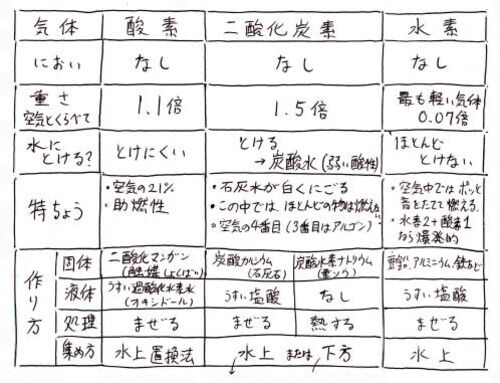 気体 酸素 二酸化炭素 水素
におい なし なし なし
重さ 空気とくらべて 1.1倍 1.5倍 最も軽い気体 0.07倍
水にとける? とけにくい とける →炭酸水(弱い酸性) ほとんどとけない
特ちょう
・空気の21%
・助燃性
・石灰水が白くにごる
・この中では、ほとんどの物は燃えない
・空気の4番目(3番目はアルゴン)
・空気中ではポッと
音をたてて燃える.
・水素2+酸素1
なら爆発的
作り方
固体 二酸化マンガン (触媒 しょくばい) 炭酸カルシウム (石灰石) 炭酸水素ナトリウム (重ソウ) 亜鉛、アルミニウム、鉄など
液体 うすい過酸化水素水 (オキシドール) うすい塩酸 なし うすい塩酸
処理 まぜる まぜる 熱する まぜる
集め方 水上置換法 水上 または 下方 水上